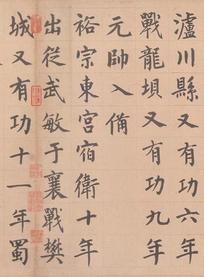 瀘川縣又有功六年
戰龍垻又有功九年
元帥入備
裕宗東宮宿衛十年
出從武敏于襄戰樊
城又有功十一年蜀